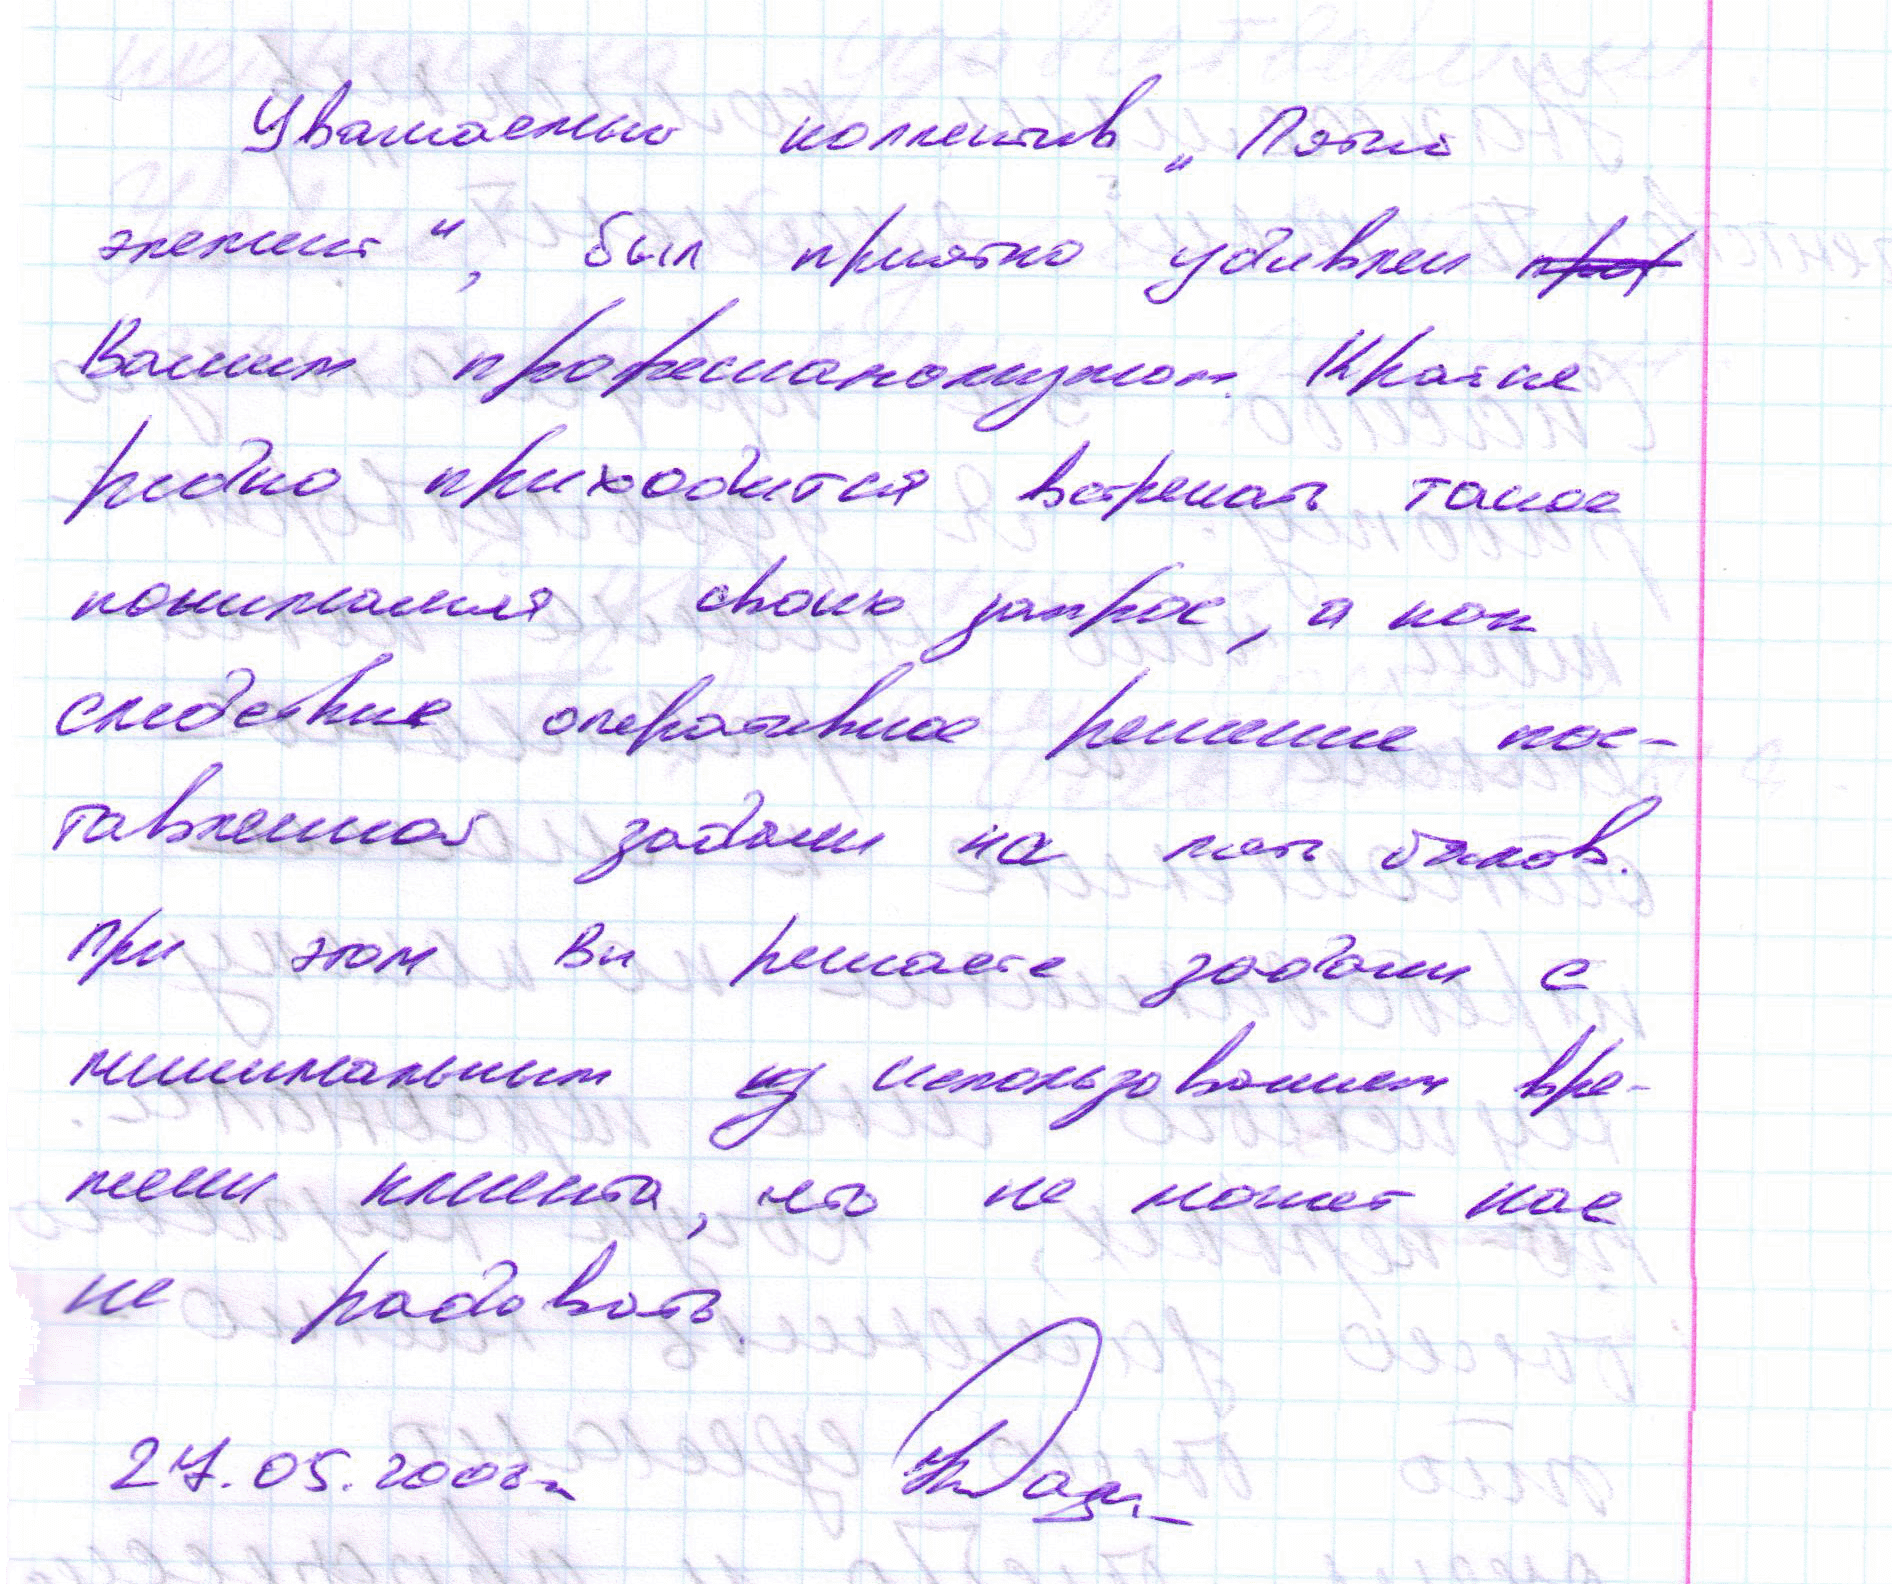 Уважаемый коллектив „Пятый
элемент“, был приятно удивлен
Вашим професианализмом. Крайне
редко приходится встречать такое
понимания свою запрос, а как
следствие оперативное решение пос-
тавленной задачи на пять балов.
При этом Вы решаете задачи с
минимальным использованием вре-
мени клиента, что не может нас
не радовать.
27.05.2008г.